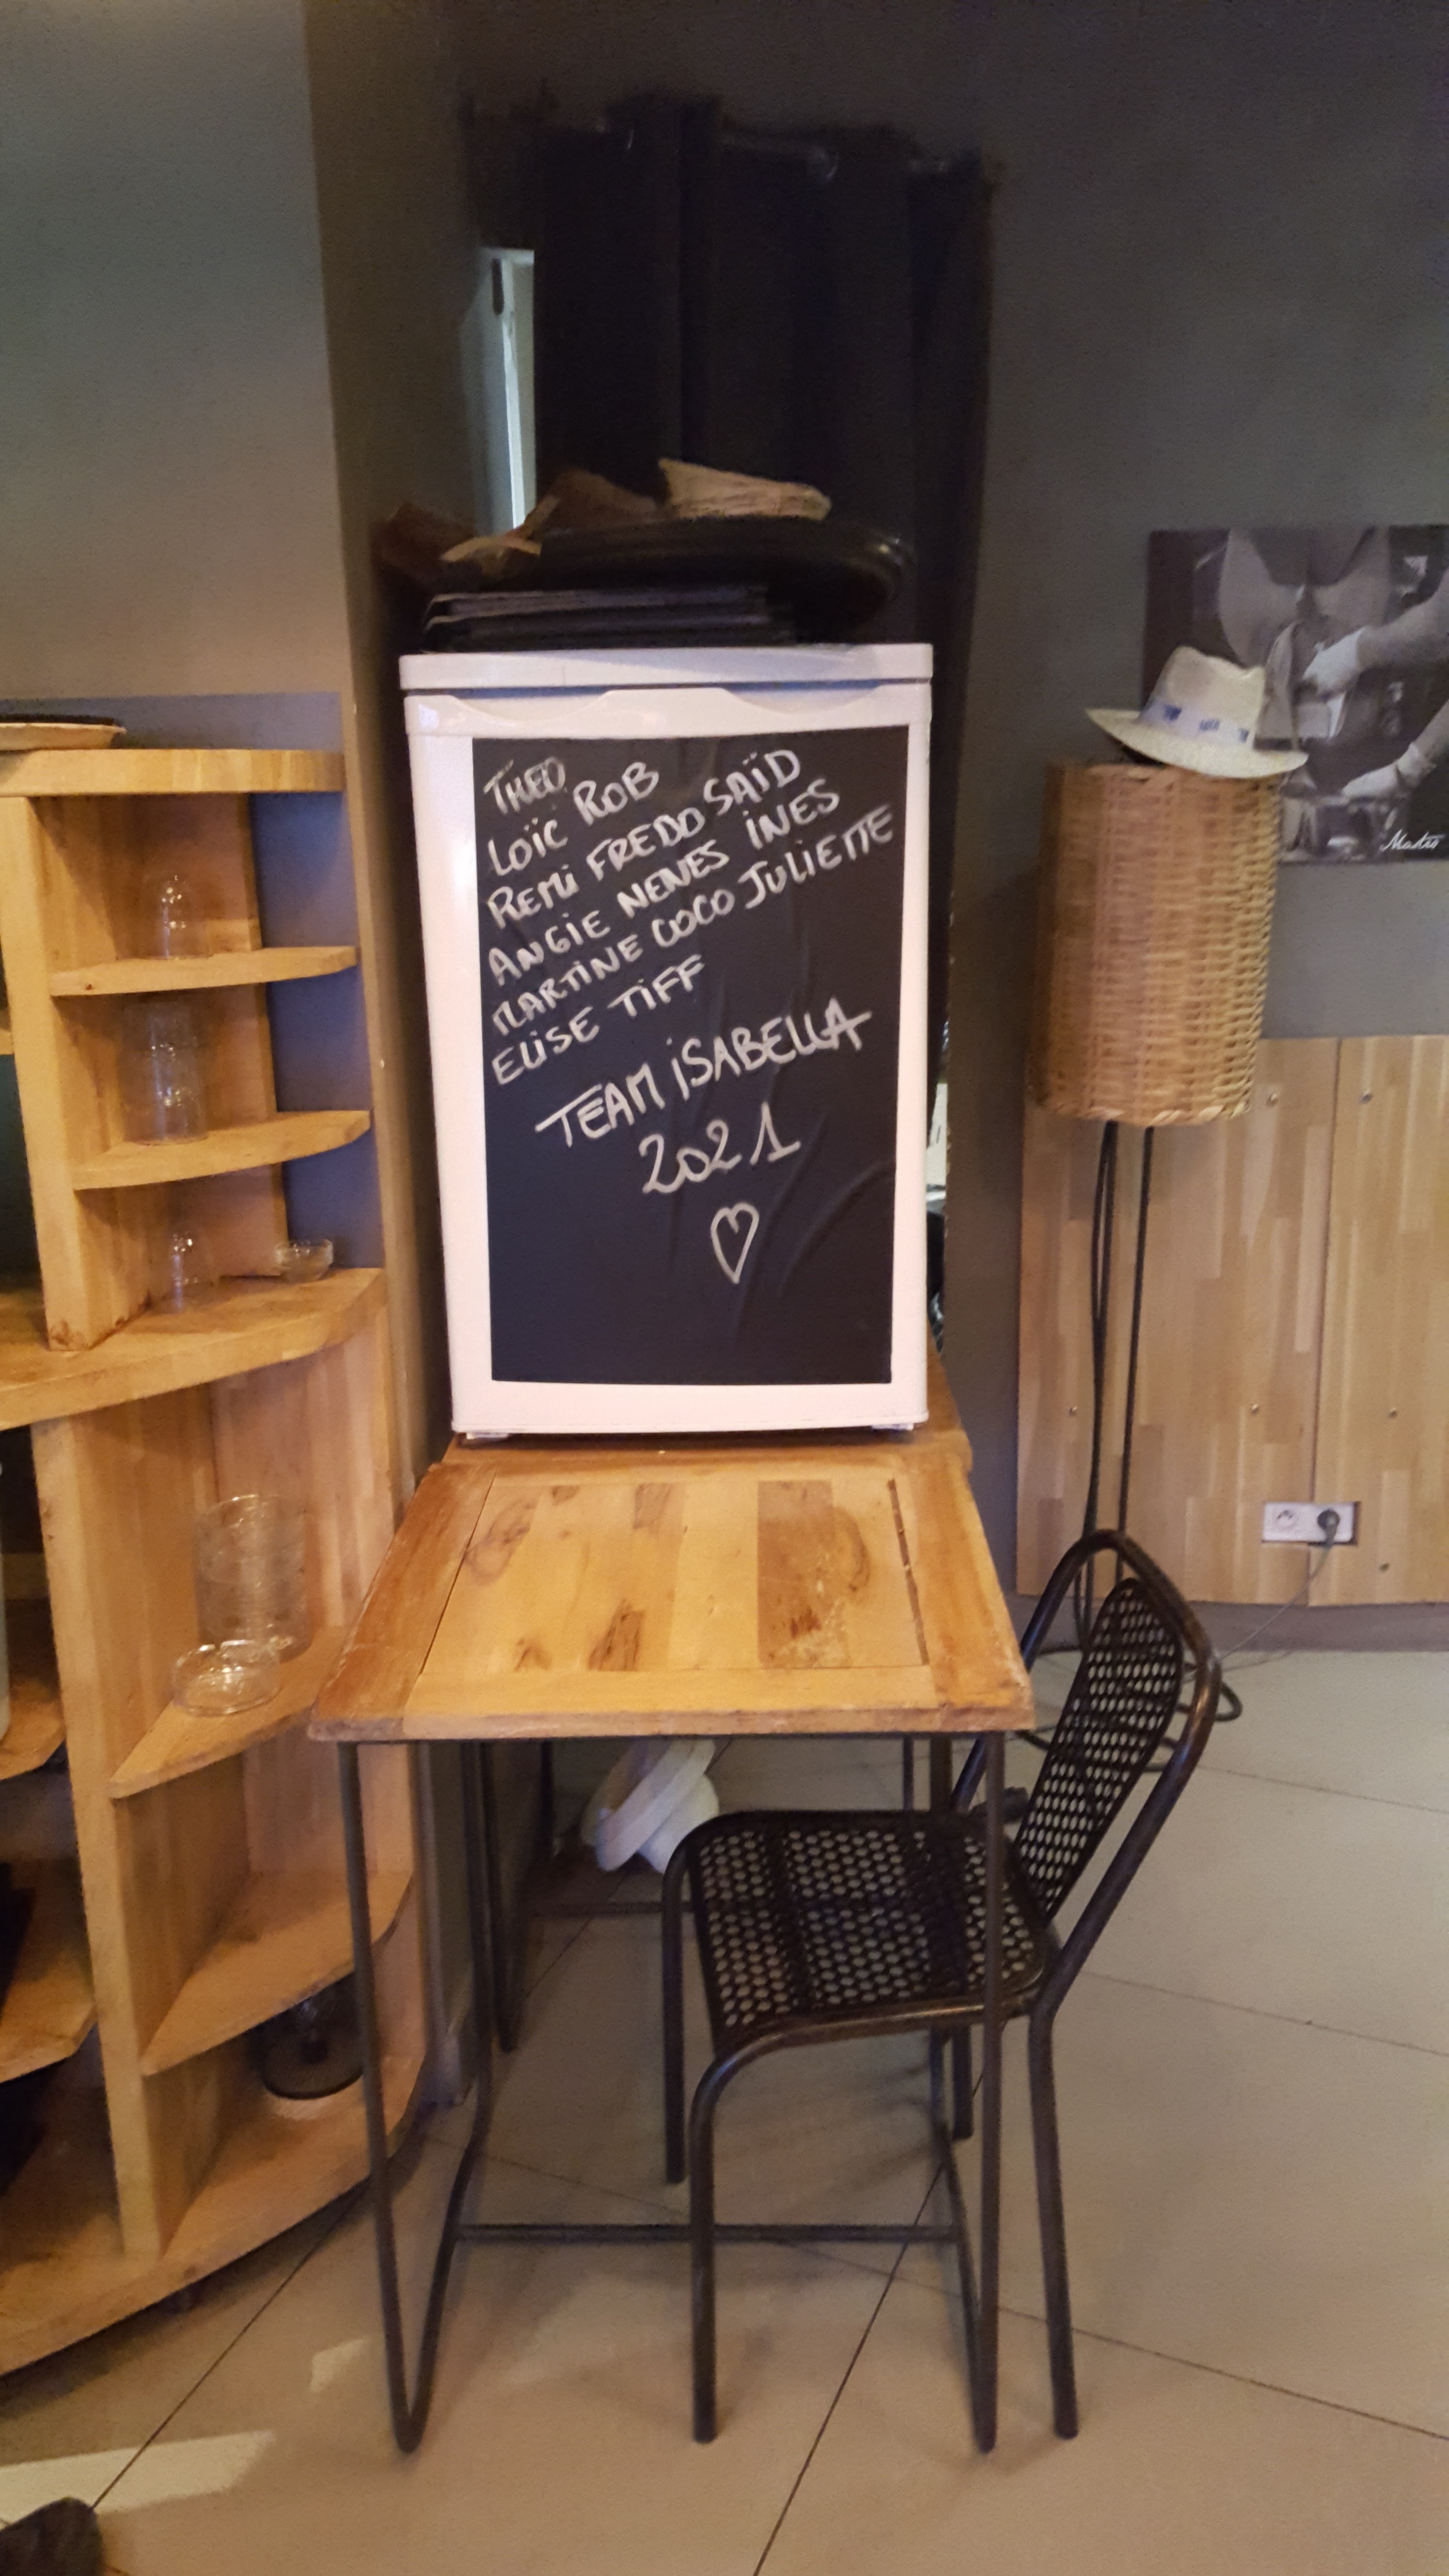 THEO
LOÏC ROB
REMI FREDO SAÏD
ANGIE NENES INES
MARTINE COCO JULIETTE
ELISE TIFF
TEAM ISABELLA
2021